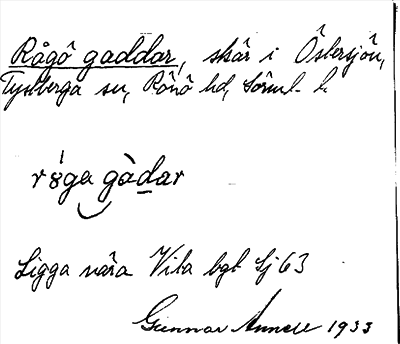 Rågö gaddar, skär i Östersjön,
Tystberga sn, Rönö hd, Sörml. l.
r󠀠ga gàdar
Ligga nära Vita bgt Lj 63
Gunnar Annell 1933